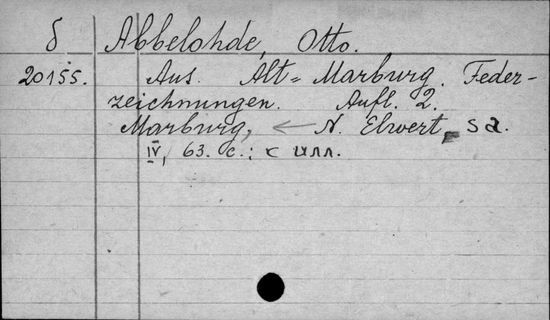 δ Abbelohde, Otto.
20155. Aus Alt=Marburg. Feder-
zeichnungen. Aufl. 2.
Marburg, ← N. Elwert, s a.
IV, 63. c.; с илл.